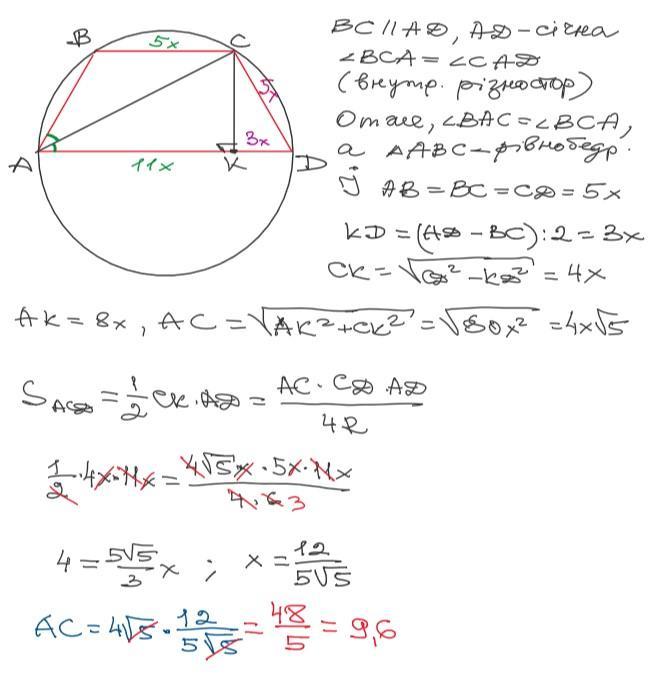 B 5x C
5x
3x
A 11x K D
BC || AD, AD – січна
∠BCA = ∠CAD
(внутр. різностор)
Отже, ∠BAC = ∠BCA,
а △ABC – рівнобедр.
Й AB = BC = CD = 5x
KD = (AD – BC) : 2 = 3x
CK = √(CD² – KD²) = 4x
AK = 8x, AC = √(AK² + CK²) = √(80x²) = 4x√5
S_ACD = 1/2 CK · AD = (AC · CD · AD)/(4R)
1/2 · 4x · 11x = (4√5x · 5x · 11x)/(4 · 6) 3
4 = (5√5)/3 x ; x = 12/(5√5)
AC = 4√5 · 12/(5√5) = 48/5 = 9,6